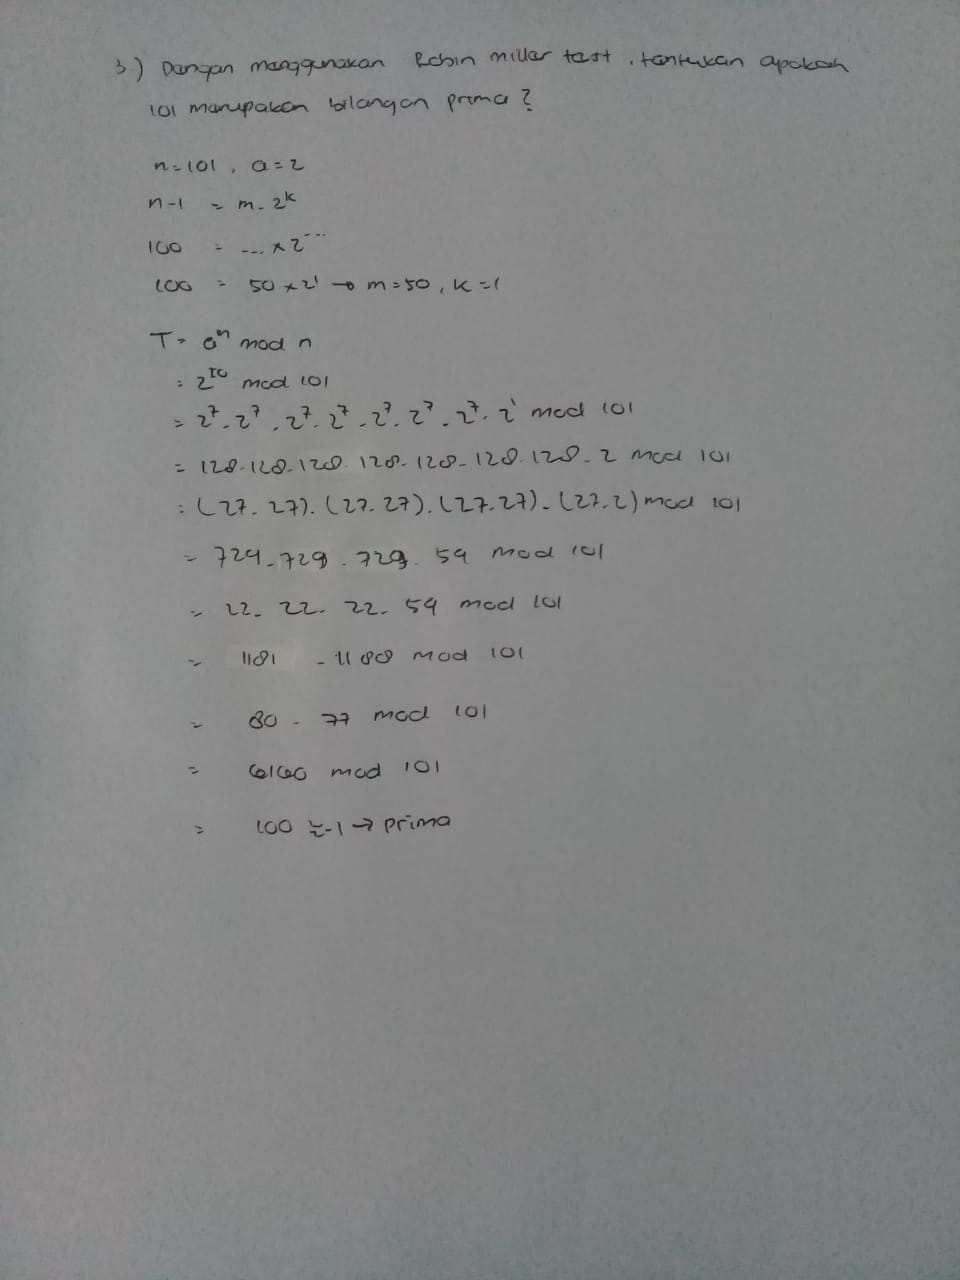 3.) Dengan menggunakan Robin millar test, tentukan apakah
101 merupakan bilangan prima?
n=101, a=2
n-1 = m. 2^k
100 = ... x 2^...
100 = 50 x 2^1 → m=50, k=1
T = a^m mod n
= 2^50 mod 101
= 2^7. 2^7. 2^7. 2^7. 2^7. 2^7. 2^7. 2^1 mod 101
= 128. 128. 128. 128. 128. 128. 128. 2 mod 101
= (27. 27). (27. 27). (27. 27). (27. 2) mod 101
= 729. 729. 729. 54 mod 101
= 22. 22. 22. 54 mod 101
= . 1188 mod 101
= 80. 77 mod 101
= 6160 mod 101
= 100 ≡ -1 → prima